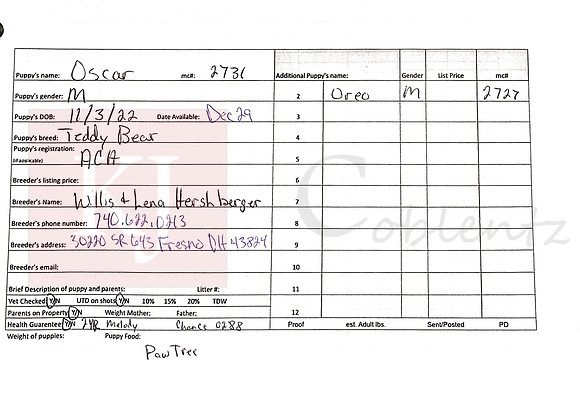 Puppy's name: Oscar mc#: 2731 Additional Puppy's name: Gender List Price mc#
Puppy's gender: M 2 Oreo M 2727
Puppy's DOB: 11/3/22 Date Available: Dec 29 3
Puppy's breed: Teddy Bear 4
Puppy's registration: ACA 5
(if applicable)
Breeder's listing price: 6
Breeder's Name: Willis & Lena Hershberger 7
Breeder's phone number: 740.622.0213 8
Breeder's address: 30220 SR 643 Fresno OH 43824 9
Breeder's email: 10
Brief Description of puppy and parents: Litter #: 11
Vet Checked Y/N UTD on shots Y/N 10% 15% 20% TDW
Parents on Property Y/N Weight Mother: Father: 12
Health Guarentee Y/N 2YR Melody Chance 0288 Proof est. Adult lbs. Sent/Posted PD
Weight of puppies: Puppy Food:
Paw Tree
KJ
Coblentz